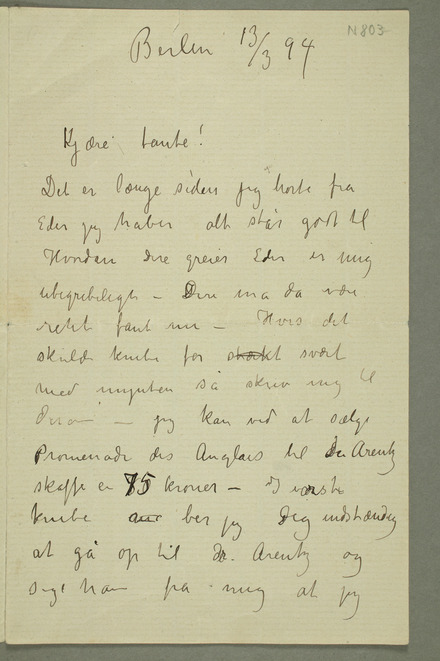 N 803
Berlin 13/3 94
Kjære tante!
Det er længe siden jeg hørte fra
Eder jeg haber alt står godt til
Hvordan dere greier Eder er mig
ubegribeligt – Dere må da være
rent fant nu – Hvis det
skulde knibe for strakt svært
med mynten så skriv mig til
– jeg kan ved at sælge
Promenade des Anglais til Dr Arentz
skaffe en 75 kroner – I værste
knibe ber jeg Dig indstændig
at gå op til dr. Arentz og
sige ham fra mig at jeg